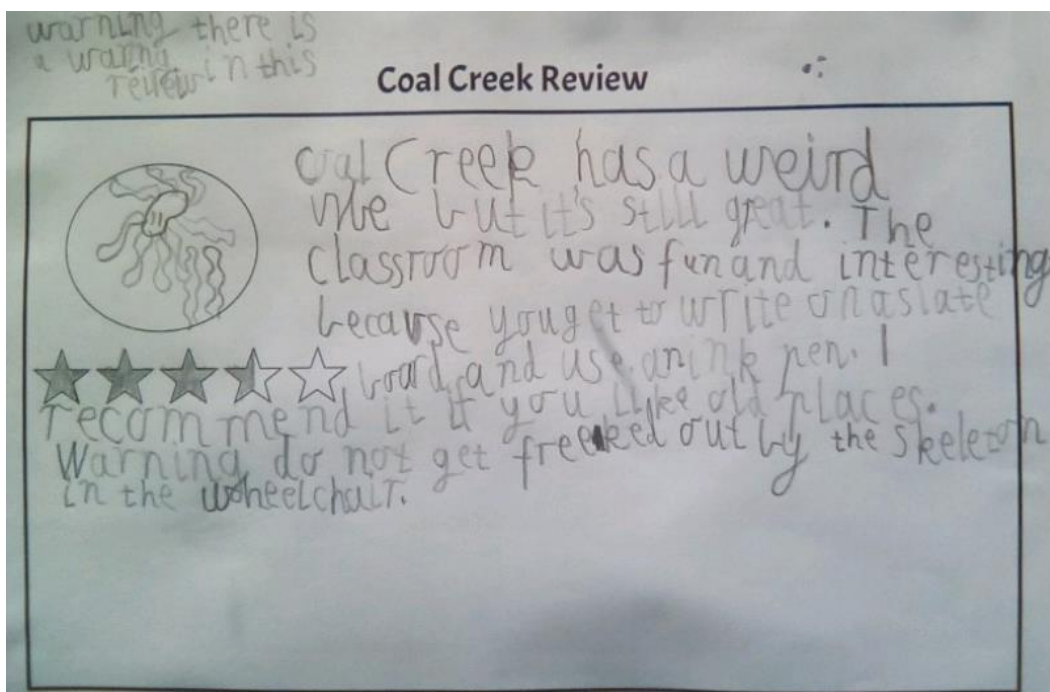 warning there is
a waring
review in this
Coal Creek Review
Coal Creek has a weird
vibe but it's still great. The
classroom was fun and interesting
because you get to write on a slate
board and use an ink pen. I
recommend it if you like old places.
Warning do not get freeked out by the skeleton
in the wheelchair.